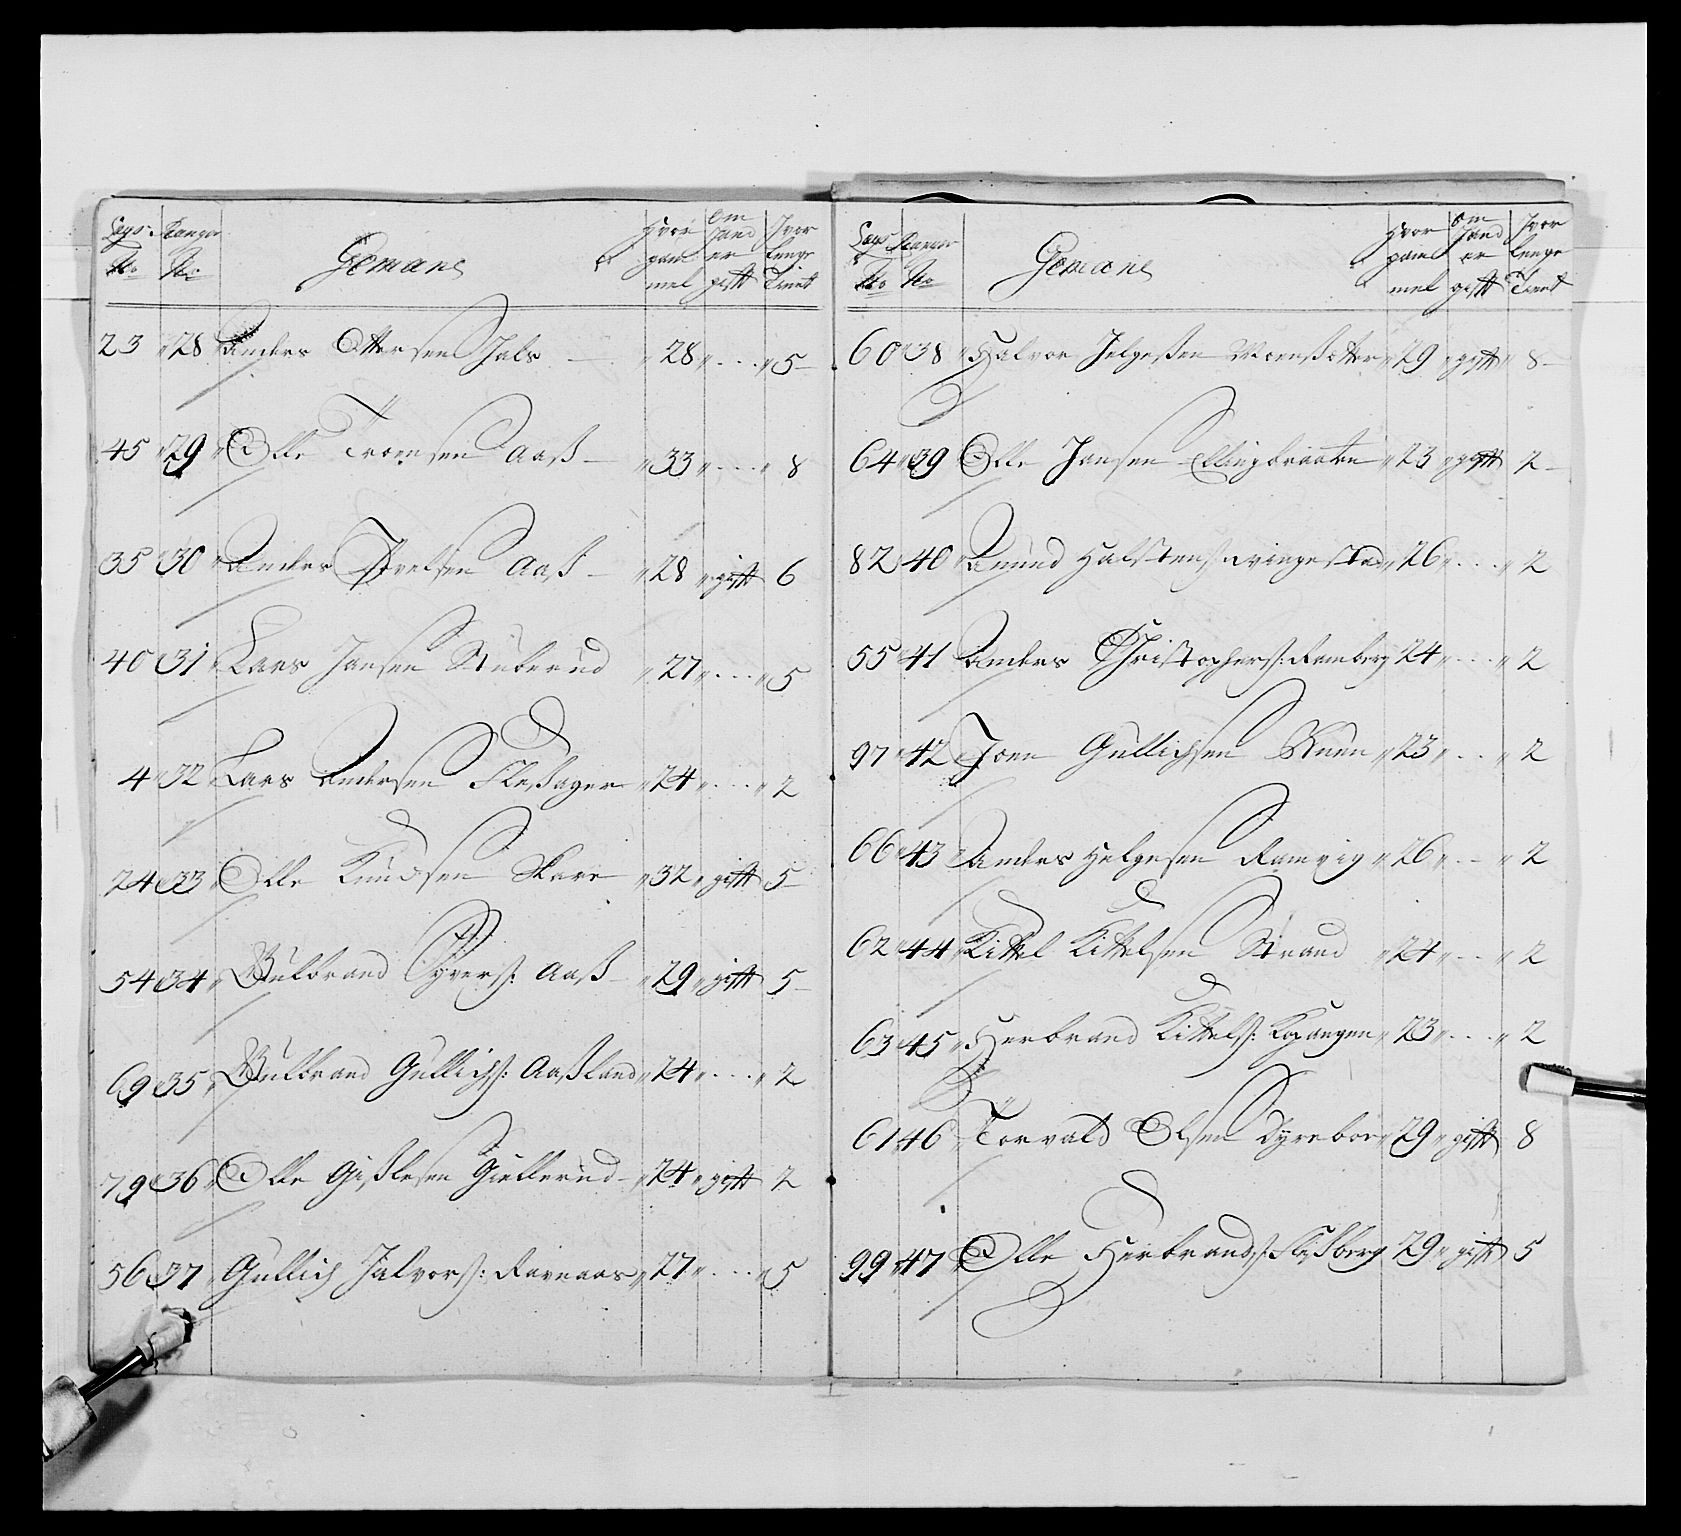 Legs No Ranger No Gemane Hvor gam mel Om hand er gift Hvor lenge Tient
23 28 Anders Ottersen Hals 28 .... 5
45 29 Olle Troensen Aaß 33 .... 8
35 30 Anders Iverson Aaß 28 gift 6
40 31 Lars Jansen Stuberud 27 .... 5
4 32 Lars Andersen Fleßager 24 .... 2
24 33 Olle Knudsen Skare 32 gift 5
54 34 Gulbrand Syvers: Aaß 29 gift 5
69 35 Gulbrand Gullichs: Aaßland 24 .... 2
79 36 Olle Gißlesen Giellerud 24 gift 2
56 37 Gullich Halvors: Ravnaas 27 .... 5
Legs No Ranger No Gemane Hvor gam mel Om hand er gift Hvor lenge Tient
60 38 Halvor Helgeßen Moenßetter 29 gift 8
64 39 Olle Jansen Ellingbraaten 23 gift 2
82 40 Amund Halstens: Svingestad 26 .... 2
55 41 Anders Christophers: Ramberg 24 .... 2
97 42 Joen Gullichsen Ruen 23 ... 2
66 43 Anders Helgesen Ramvig 26 .. 2
62 44 Kittel Kittelsen Strand 24 ... 2
63 45 Herbrand Kittels: Kopangen 23 .... 2
61 46 Torvald Olsen Dyreboe 29 gift 8
99 47 Olle Herbrands: Fleßberg 29 gift 5